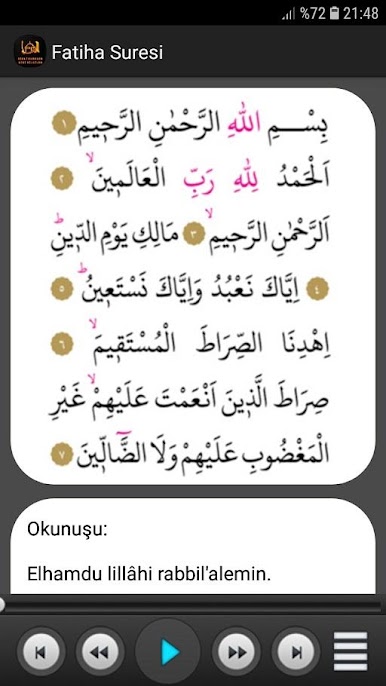 %72 21:48
Fatiha Suresi
بِسْمِ اللهِ الرَّحْمٰنِ الرَّحٖيمِ ١
اَلْحَمْدُ لِلّٰهِ رَبِّ الْعَالَمٖينَۙ ٢
اَلرَّحْمٰنِ الرَّحٖيمِۙ ٣ مَالِكِ يَوْمِ الدّٖينِۜ
٤ اِيَّاكَ نَعْبُدُ وَاِيَّاكَ نَسْتَعٖينُۜ ٥
اِهْدِنَا الصِّرَاطَ الْمُسْتَقٖيمَۙ ٦
صِرَاطَ الَّذٖينَ اَنْعَمْتَ عَلَيْهِمْۙ غَيْرِ
الْمَغْضُوبِ عَلَيْهِمْ وَلَا الضَّٓالّٖينَ ٧
Okunuşu:
Elhamdu lillâhi rabbil'alemin.